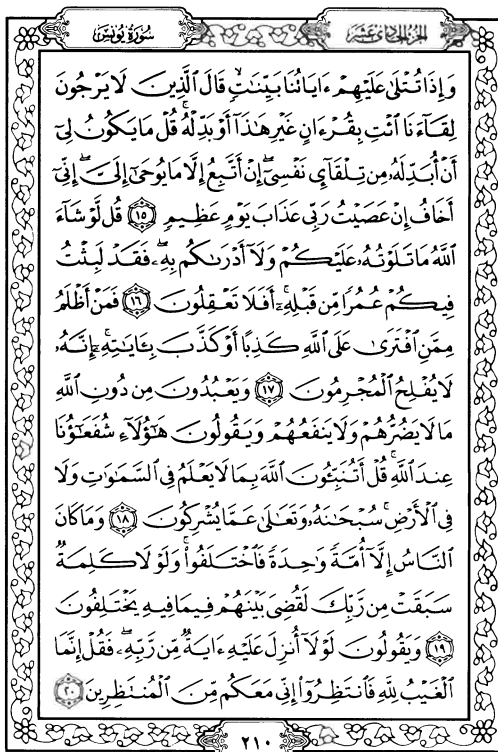 سُورَةُ يُونُسَ
الجُزْءُ الحَادِي عَشَرَ
وَإِذَا تُتْلَىٰ عَلَيْهِمْ ءَايَاتُنَا بَيِّنَٰتٍ قَالَ ٱلَّذِينَ لَا يَرْجُونَ
لِقَآءَنَا ٱئْتِ بِقُرْءَانٍ غَيْرِ هَٰذَآ أَوْ بَدِّلْهُ ۚ قُلْ مَا يَكُونُ لِىٓ
أَنْ أُبَدِّلَهُۥ مِن تِلْقَآئِ نَفْسِىٓ ۖ إِنْ أَتَّبِعُ إِلَّا مَا يُوحَىٰٓ إِلَىَّ ۖ إِنِّىٓ
أَخَافُ إِنْ عَصَيْتُ رَبِّى عَذَابَ يَوْمٍ عَظِيمٍ ١٥ قُل لَّوْ شَآءَ
ٱللَّهُ مَا تَلَوْتُهُۥ عَلَيْكُمْ وَلَآ أَدْرَىٰكُم بِهِۦ ۖ فَقَدْ لَبِثْتُ
فِيكُمْ عُمُرًا مِّن قَبْلِهِۦٓ ۚ أَفَلَا تَعْقِلُونَ ١٦ فَمَنْ أَظْلَمُ
مِمَّنِ ٱفْتَرَىٰ عَلَى ٱللَّهِ كَذِبًا أَوْ كَذَّبَ بِـَٔايَٰتِهِۦٓ ۚ إِنَّهُۥ
لَا يُفْلِحُ ٱلْمُجْرِمُونَ ١٧ وَيَعْبُدُونَ مِن دُونِ ٱللَّهِ
مَا لَا يَضُرُّهُمْ وَلَا يَنفَعُهُمْ وَيَقُولُونَ هَٰٓؤُلَآءِ شُفَعَٰٓؤُنَا
عِندَ ٱللَّهِ ۚ قُلْ أَتُنَبِّـُٔونَ ٱللَّهَ بِمَا لَا يَعْلَمُ فِى ٱلسَّمَٰوَٰتِ وَلَا
فِى ٱلْأَرْضِ ۚ سُبْحَٰنَهُۥ وَتَعَٰلَىٰ عَمَّا يُشْرِكُونَ ١٨ وَمَا كَانَ
ٱلنَّاسُ إِلَّآ أُمَّةً وَٰحِدَةً فَٱخْتَلَفُوا۟ ۚ وَلَوْلَا كَلِمَةٌ
سَبَقَتْ مِن رَّبِّكَ لَقُضِىَ بَيْنَهُمْ فِيمَا فِيهِ يَخْتَلِفُونَ
١٩ وَيَقُولُونَ لَوْلَآ أُنزِلَ عَلَيْهِ ءَايَةٌ مِّن رَّبِّهِۦ ۖ فَقُلْ إِنَّمَا
ٱلْغَيْبُ لِلَّهِ فَٱنتَظِرُوٓا۟ إِنِّى مَعَكُم مِّنَ ٱلْمُنتَظِرِينَ ٢٠
٢١٠